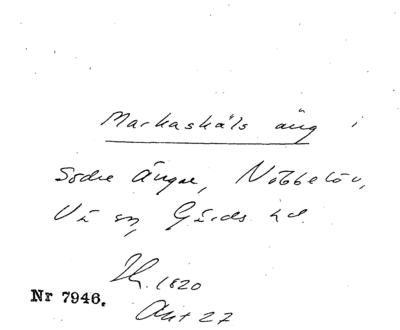 Markaskåls äng i
Södre Ängar, Nöbbelöv,
Vä sn, Gärds hd.
1820
Nr 7946.
Akt 27